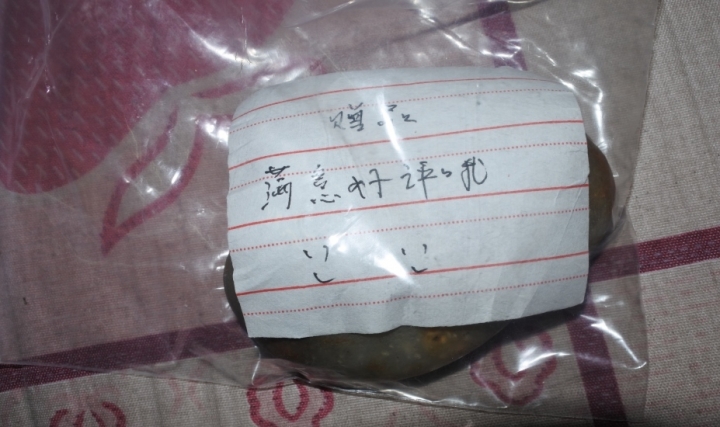 赠品
满意好评哦